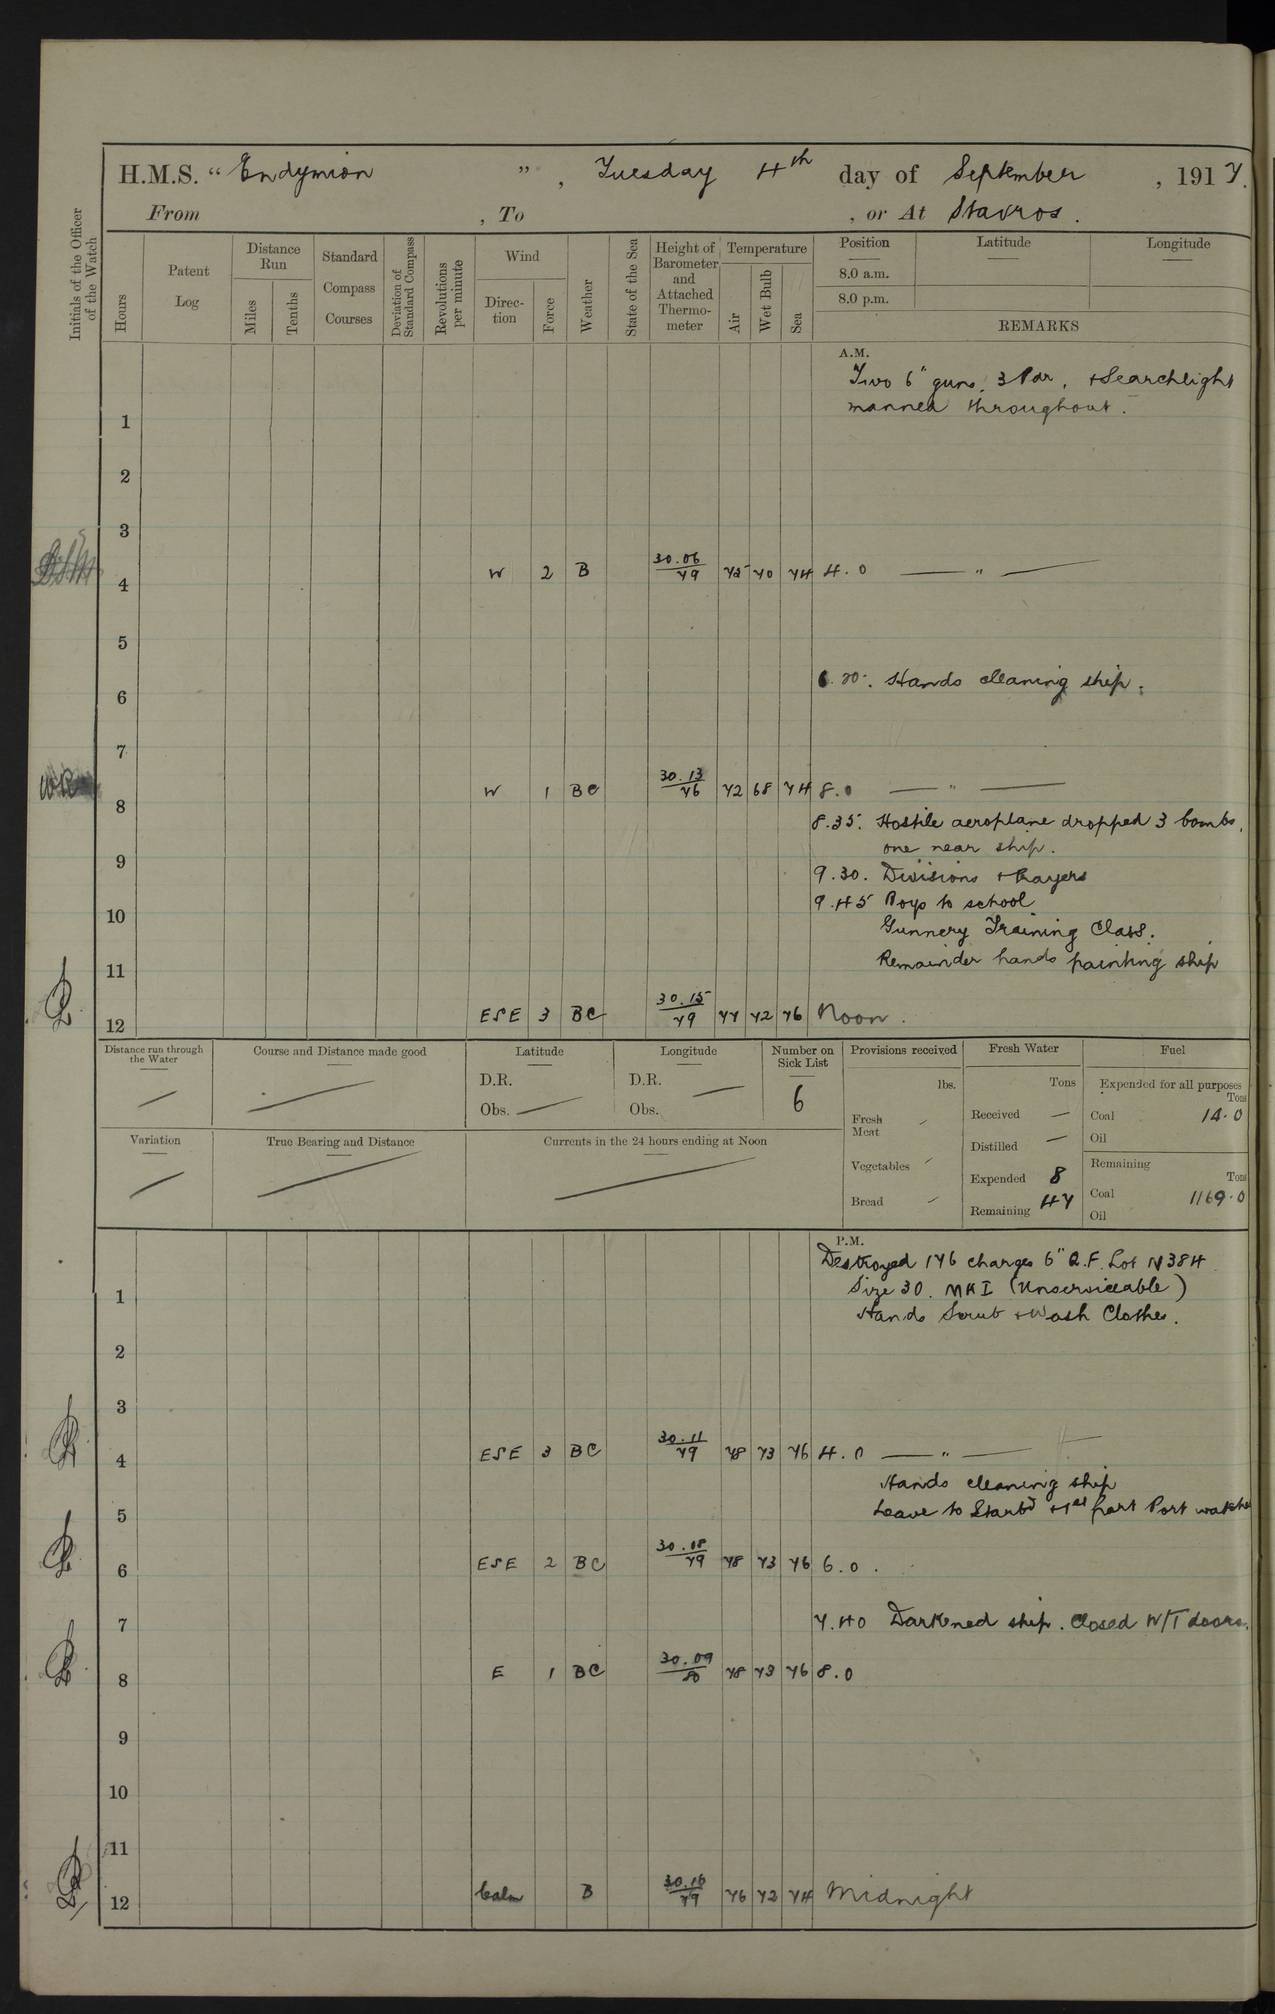 H.M.S. “ Endymion ” , Tuesday 4th day of September , 1917.
From , To , or At Stavros.
Initials of the Officer of the Watch
Hours
Patent Log
Distance Run
Miles
Tenths
Standard Compass Courses
Deviation of Standard Compass
Revolutions per minute
Wind
Direc-tion
Force
Weather
State of the Sea
Height of Barometer and Attached Thermo-meter
Temperature
Air
Wet Bulb
Sea
Position Latitude Longitude
8.0 a.m.
8.0 p.m.
REMARKS
A.M.
Two 6" guns. 3 Pdr, + Searchlight
1 manned throughout.
2
3
4 W 2 B 30.06/79 75 70 74 4.0 — " —
5
6.20. Hands cleaning ship.
6
7
8 W 1 BC 30.13/76 72 68 74 8.0 — " —
8.35. Hostile aeroplane dropped 3 bombs,
one near ship.
9 9.30. Divisions + Prayers
10 9.45 Boys to school
Gunnery Training Class.
11 Remainder hands painting ship
12 ESE 3 BC 30.15/79 77 72 76 Noon.
Distance run through the Water
Course and Distance made good
Latitude
D.R.
Obs. —
Longitude
D.R. —
Obs.
Number on Sick List
6
Variation
True Bearing and Distance
Currents in the 24 hours ending at Noon
Provisions received
lbs.
Fresh Meat
Vegetables
Bread
Fresh Water
Tons
Received —
Distilled —
Expended 8
Remaining 47
Fuel
Expended for all purposes
Tons
Coal 14.0
Oil
Remaining
Tons
Coal 1169.0
Oil
P.M.
Destroyed 176 charges 6" Q.F. Lot N384
1 Size 30. MK I (Unserviceable)
Hands Scrub + Wash Clothes.
2
3
4 ESE 3 BC 30.11/79 78 73 76 4.0 — " —
Hands cleaning ship
5 Leave to Starbd + 1st part Port watches
6 ESE 2 BC 30.08/79 78 73 76 6.0.
7 7.40 Darkened ship. Closed W/T doors.
8 E 1 BC 30.09/80 78 73 76 8.0
9
10
11
12 Calm B 30.10/79 76 72 74 Midnight